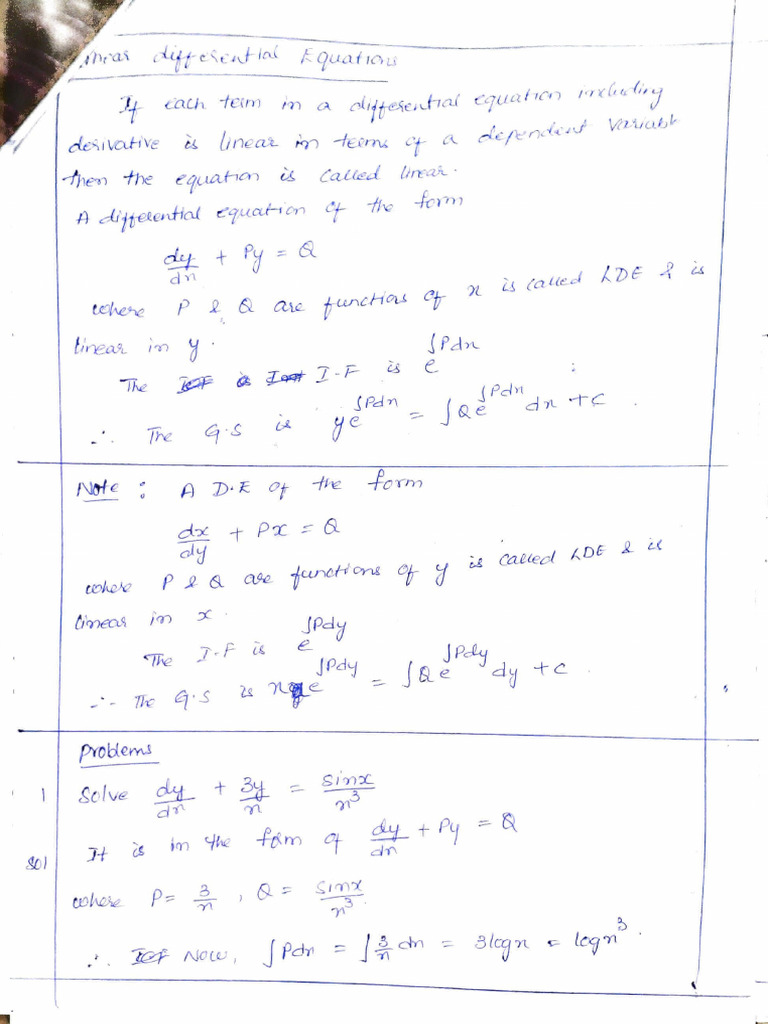 linear differential Equations
If each term in a differential equation including
derivative is linear in terms of a dependent variabl
then the equation is called linear.
A differential equation of the form
dy/dx + Py = Q
where P & Q are functions of x is called LDE & is
linear in y.
The I.F is e^∫Pdx
∴ The G.S is ye^∫Pdx = ∫Qe^∫Pdx dx + c.
Note : A D.E of the form
dx/dy + Px = Q
where P & Q are functions of y is called LDE & is
linear in x.
The I.F is e^∫Pdy
∴ The G.S is xe^∫Pdy = ∫Qe^∫Pdy dy + c.
Problems
1 Solve dy/dx + 3y/x = sinx/x³
sol It is in the form of dy/dx + Py = Q
where P = 3/x , Q = sinx/x³.
∴ Now, ∫Pdx = ∫3/x dx = 3logx = logx³.